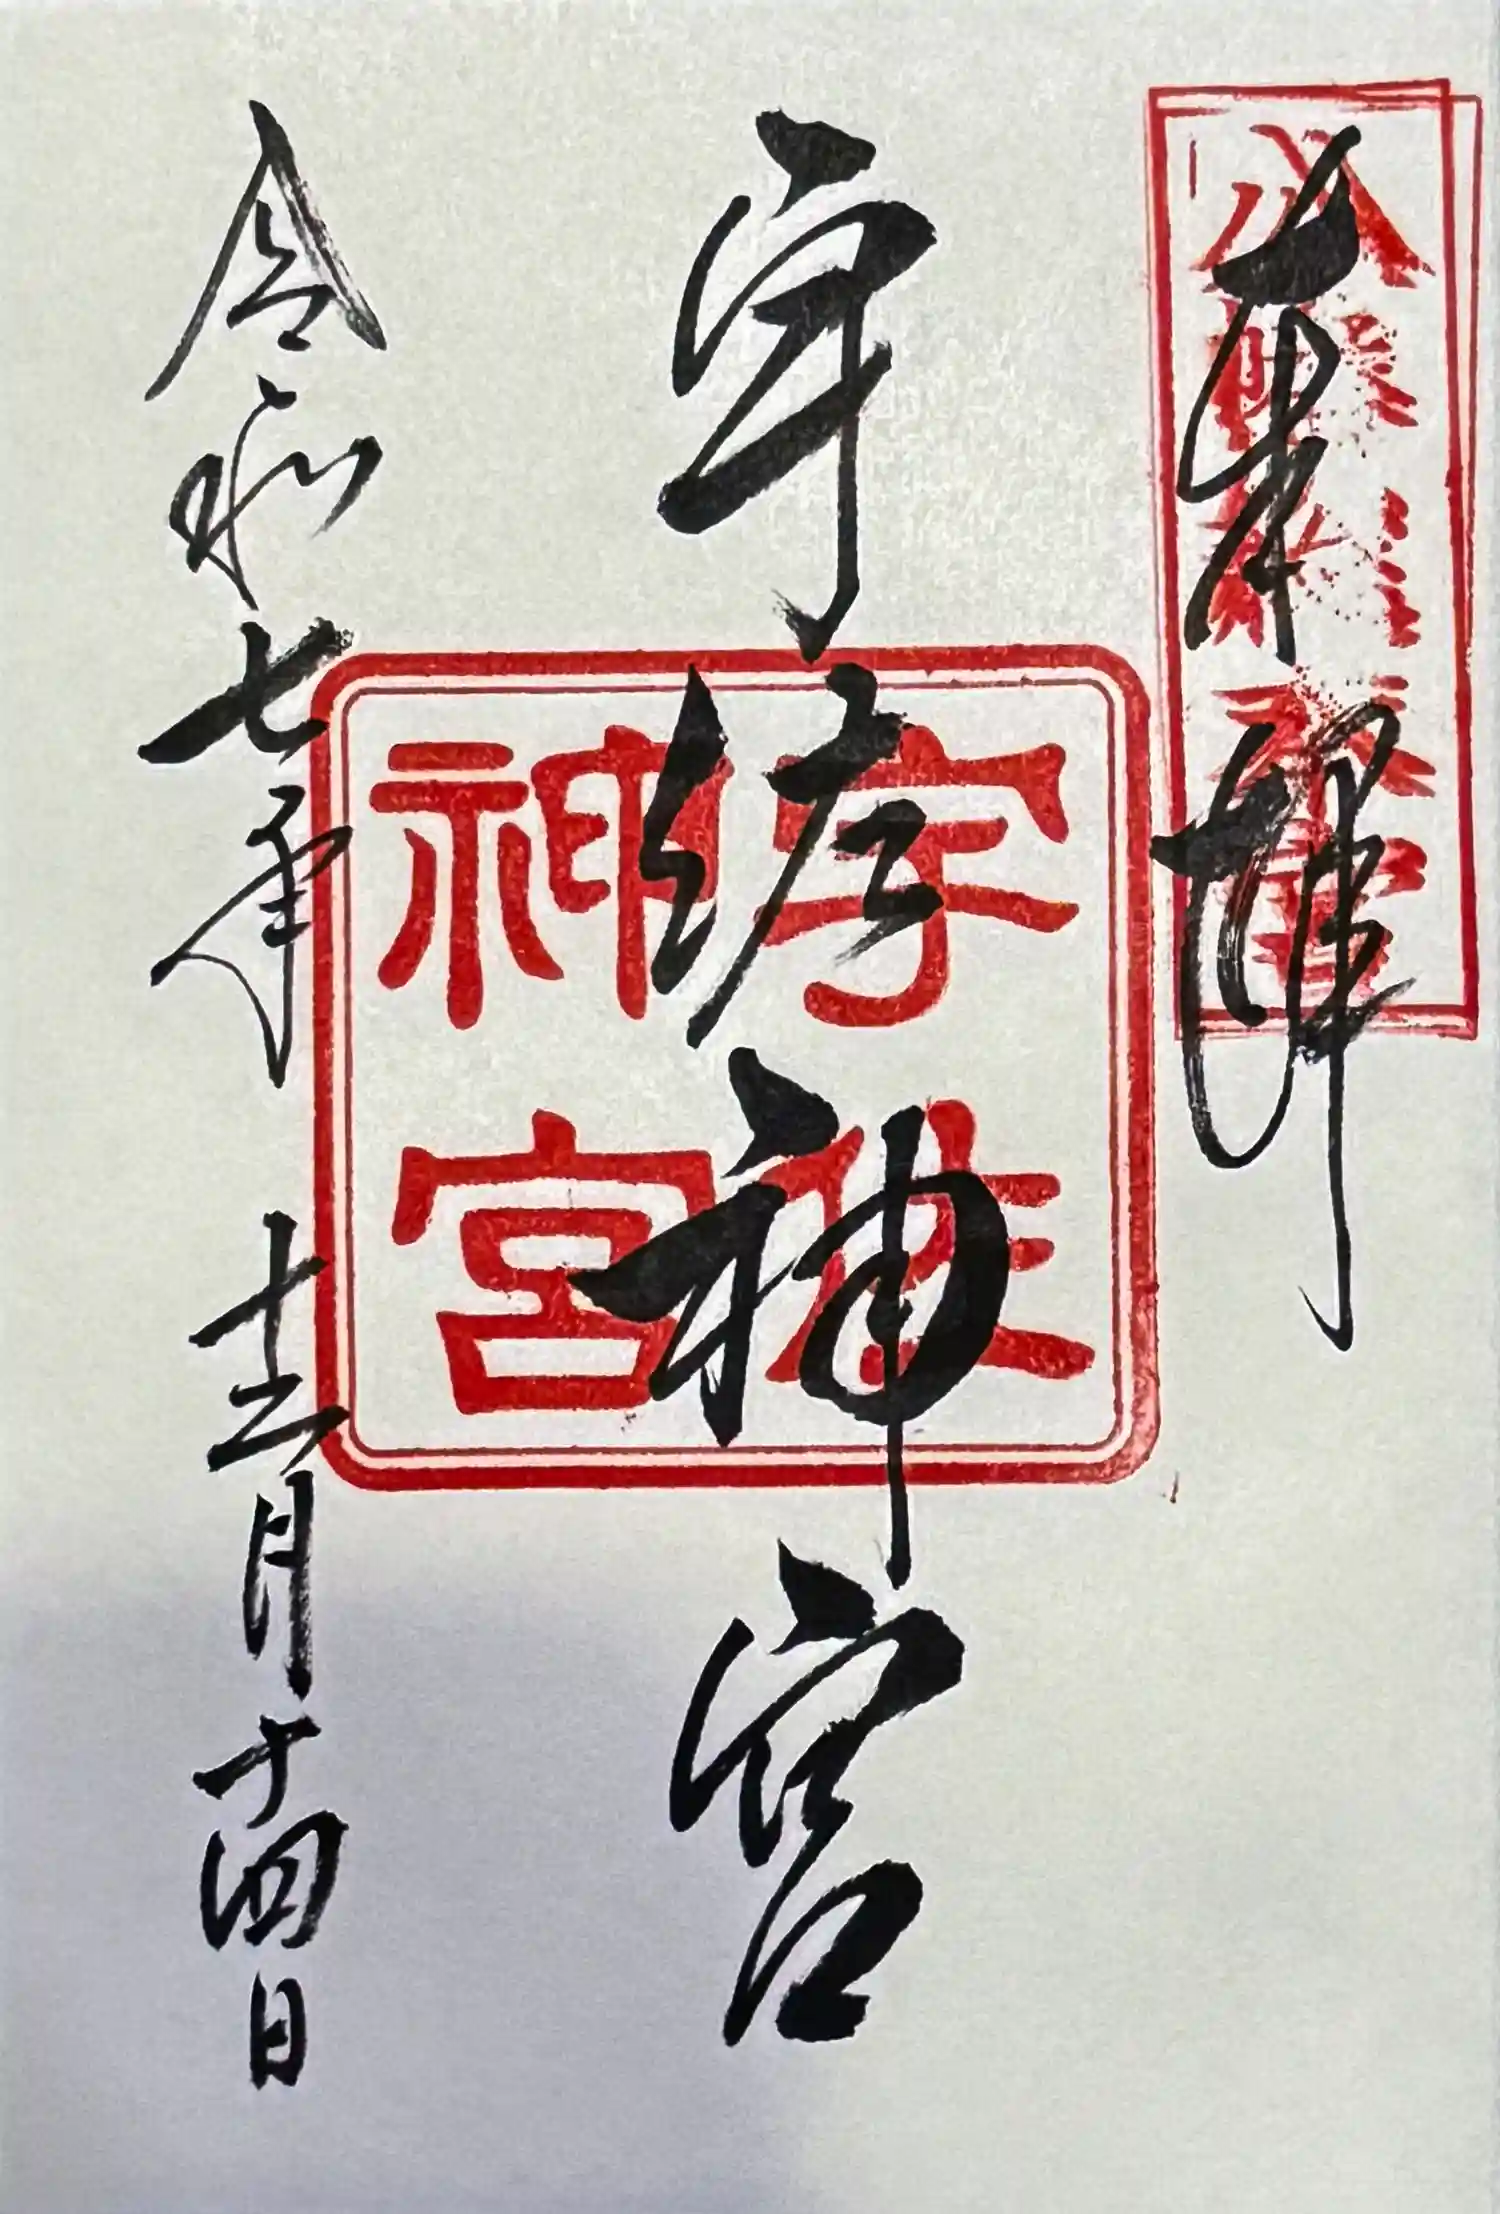 奉拝
宇佐神宮
宇佐
神宮
令和七年 十二月十四日